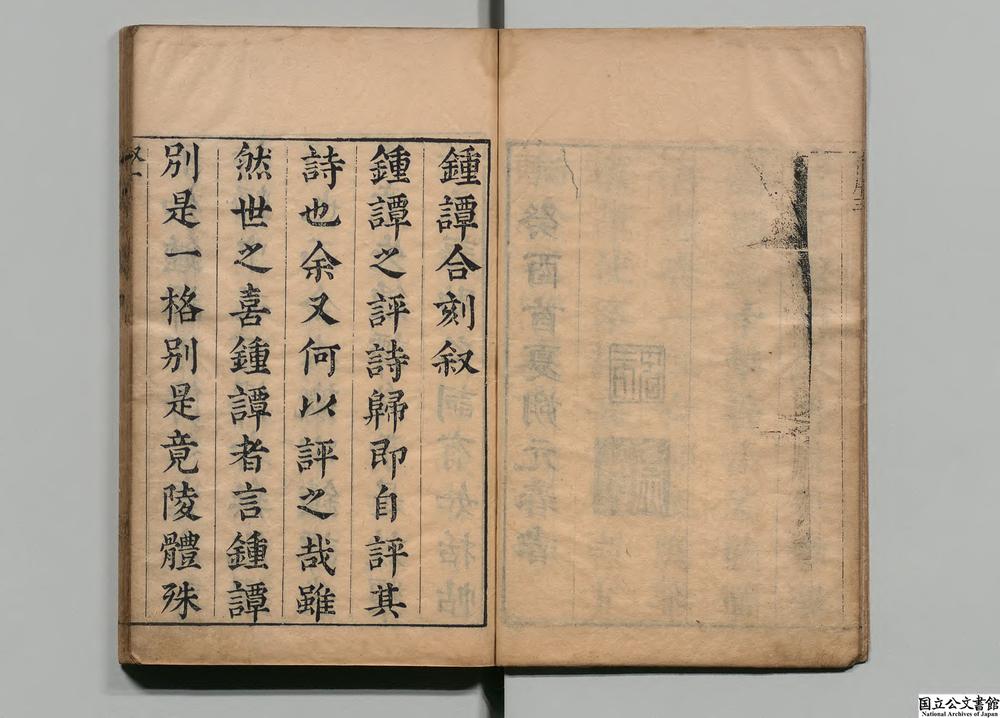 鍾譚合刻叙
鍾譚之評詩歸即自評其
詩也余又何以評之哉雖
然世之喜鍾譚者言鍾譚
別是一格別是竟陵體殊
国立公文書館
National Archives of Japan